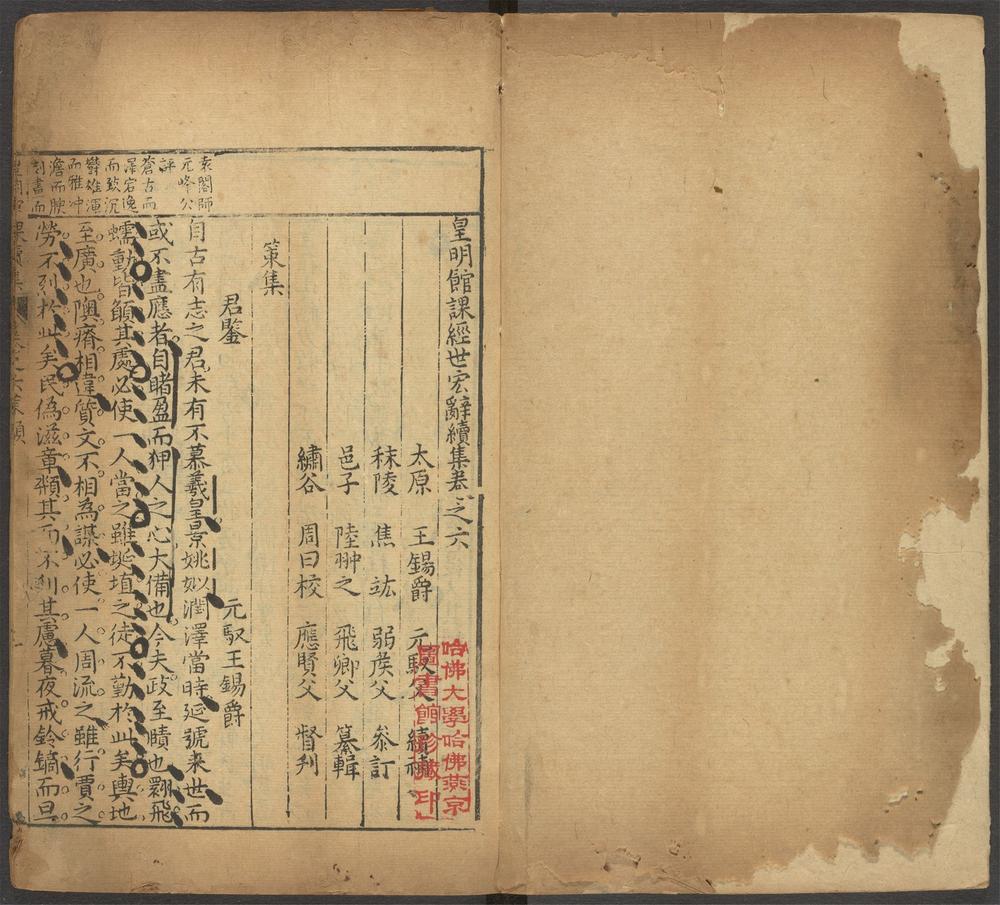 皇明館課經世宏辭續集卷之六
太原 王錫爵 元馭父 續補
秣陵 焦竑 弱侯父 叅訂
邑子 陸翀之 飛卿父 纂輯
繡谷 周曰校 應賢父 督刋
策集
君鑒 元馭王錫爵
自古有志之君未有不慕羲皇景姚姒潤澤當時延號来世而
或不盡應者自睹盈而狎人之心大備也今夫政至賾也翾飛
蠕動皆頠其處必使一人當之雖埏埴之徒不勤於此矣輿地
至廣也隩瘠相違質文不相為謀必使一人周流之雖行賈之
勞不烈於此矣民偽滋章類其而不利其慮暮夜戒鈴鏑而旦
袁閣師
元峰公
評
蒼古而
深宕逸
而致沉
欝雄渾
而雅冲
澹而腴
刻畫而
哈佛大學哈佛燕京
圖書館珍藏印